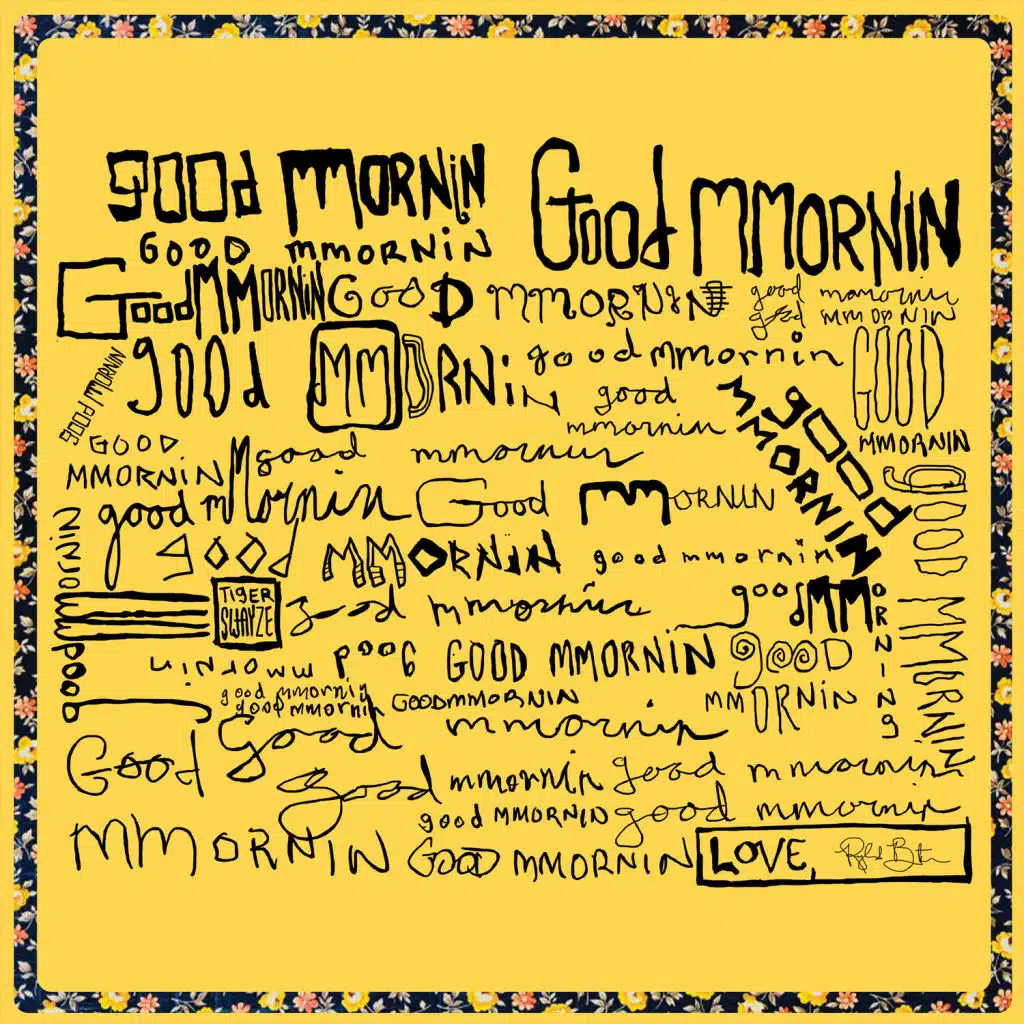 good MMORNiN
Good MMORNIN
GOOD MMORNiN
Good MMORNiN
GOOD MMORNiN
good
good MMORNIN
good MMORNIN
good MMORNiN
good mmornin
GOOD
MMORNIN
good
mmornin
good MMORNIN
GOOD
MMORNiN
good mmornin
good mMornin
Good MMORNIN
good MMORNIN
good MMORNIN
good mmornin
good mmornin
TiGER
SWAYZE
good mmornin
good MMORNiNg
good MMORNIN
good mmornin
GOOD MMORNiN
good
MMORNiN
good mmornig
good mmornin
GOODMMORNIN
good mmornin
Good
MMORNIN
good mmornin
good mmornin
good MMORNIN
good mmornin
Good MMORNIN
LOVE,